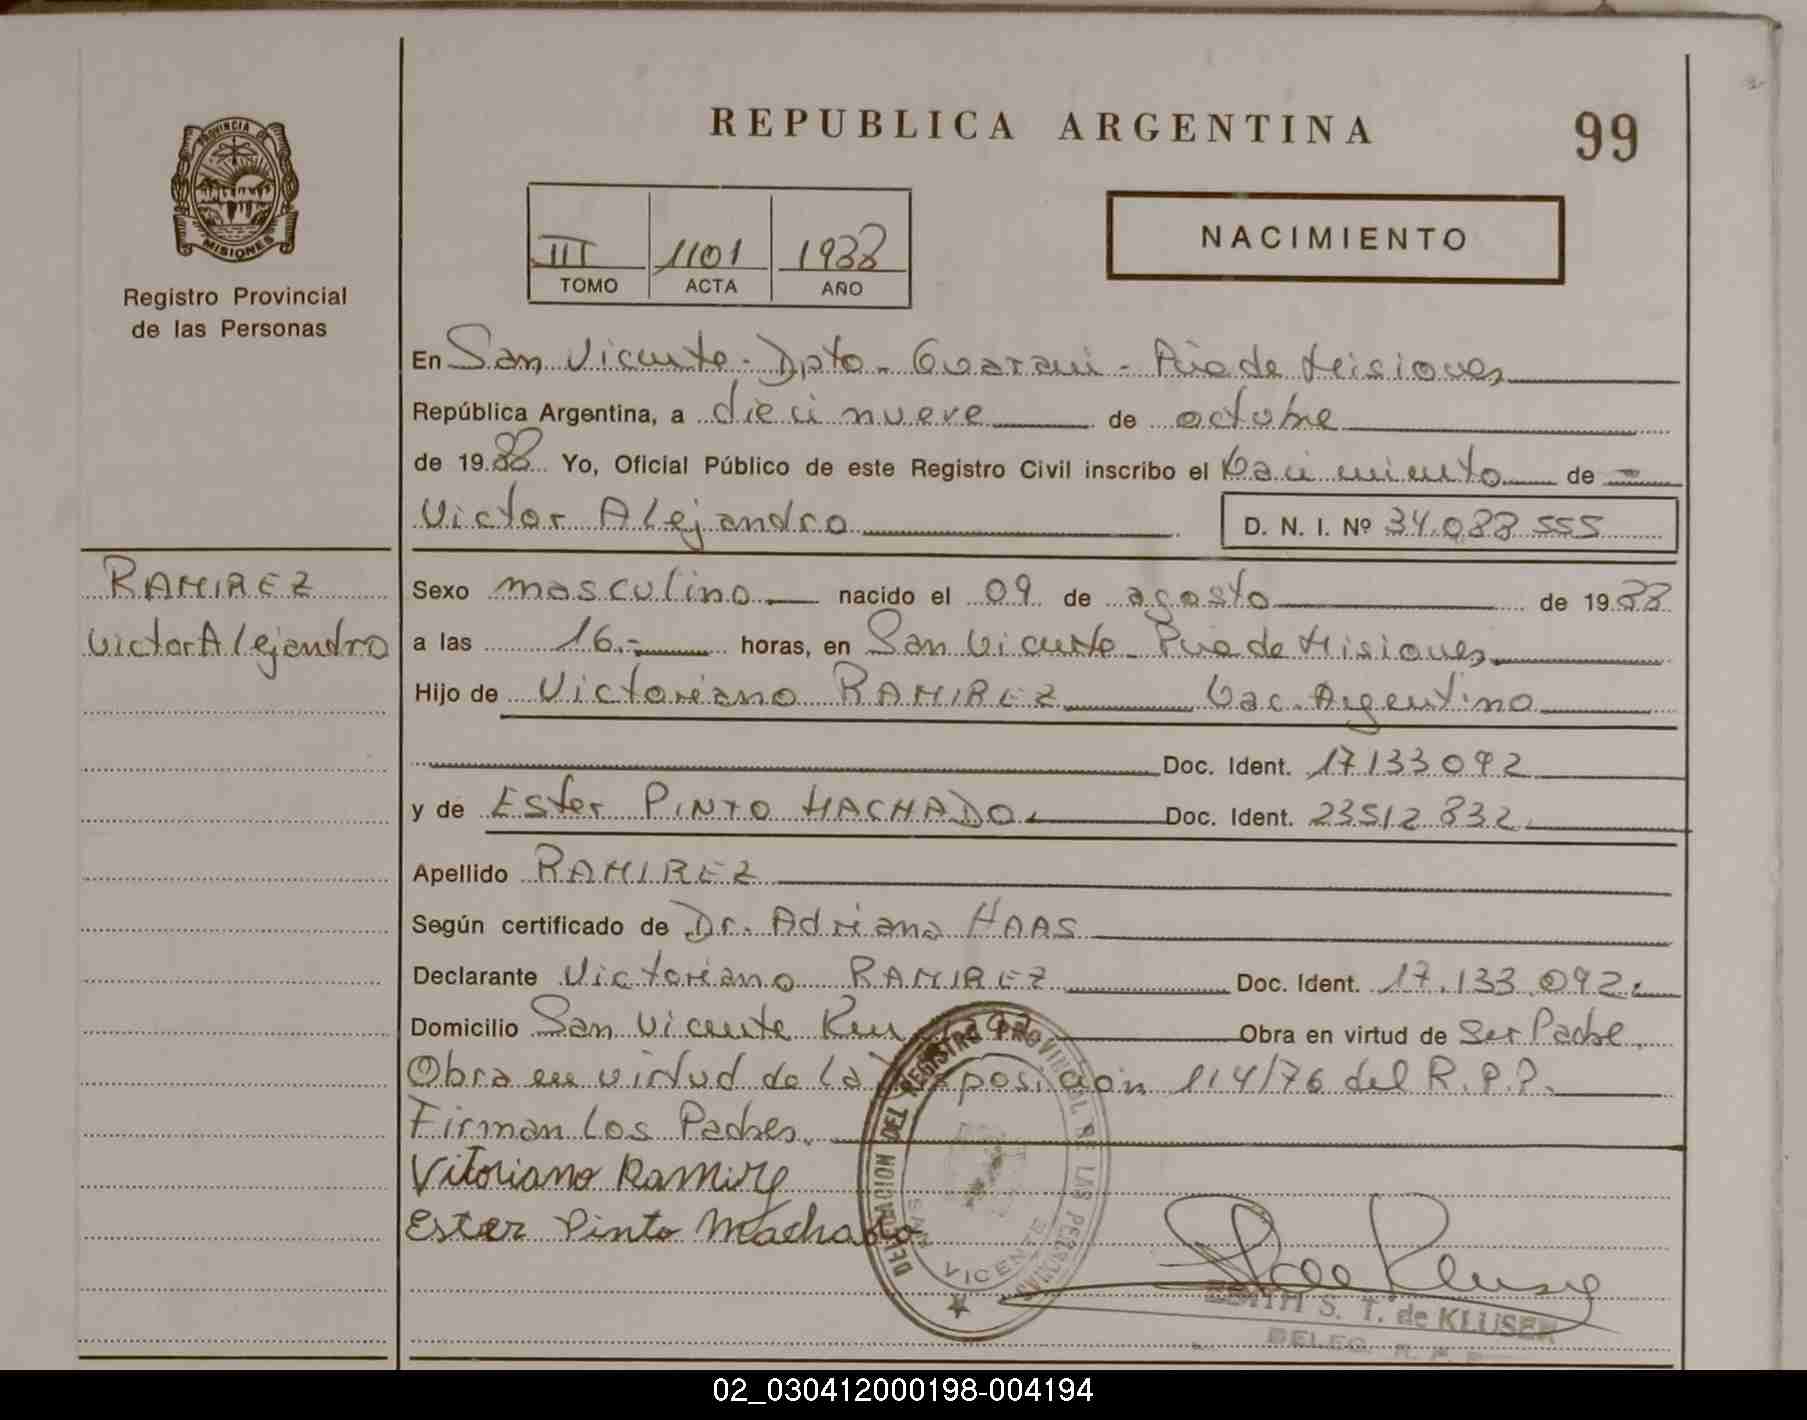 REPUBLICA ARGENTINA
99
PROVINCIA DE
MISIONES
Registro Provincial
de las Personas
III 1101 1988
TOMO ACTA AÑO
NACIMIENTO
En San Vicente - Dpto - Guarani - Pcia de Misiones
República Argentina, a dieci nueve de octubre
de 1988 Yo, Oficial Público de este Registro Civil inscribo el Nacimiento de
Victor Alejandro D. N. I. Nº 34.088.555
RAMIREZ
Victor Alejandro
Sexo masculino nacido el 09 de agosto de 1988
a las 16.- horas, en San Vicente - Pcia de Misiones
Hijo de Victoriano RAMIREZ Nac. Argentino
Doc. Ident. 17133092
y de Ester PINTO MACHADO. Doc. Ident. 23512832.
Apellido RAMIREZ
Según certificado de Dr. Adriana HAAS
Declarante Victoriano RAMIREZ Doc. Ident. 17.133.092.
Domicilio San Vicente Km Obra en virtud de Ser Padre.
Obra en virtud de la Disposición 114/76 del R.P.P.
Firman los Padres.
Vitoriano Ramirez
Ester Pinto Machado
DELEGACION DEL REGISTRO PROVINCIAL DE LAS PERSONAS
SAN VICENTE
EDITH S. T. de KLUSER
DELEG. R. P. P.
02_030412000198-004194